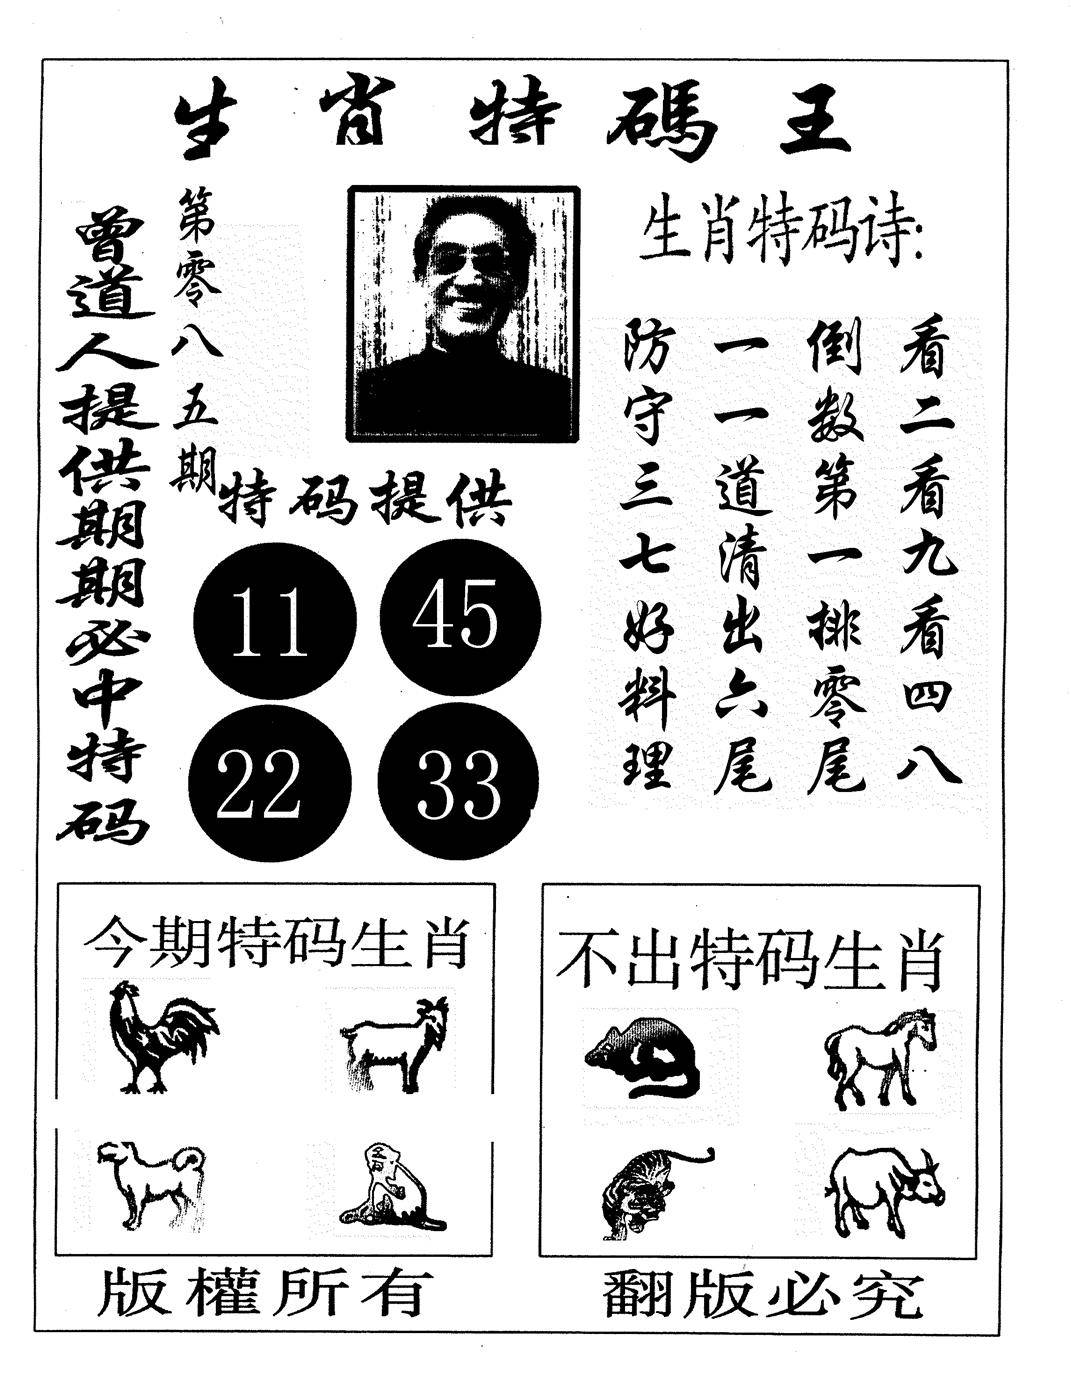 生肖特碼王
曾道人提供期期必中特码
第零八五期
生肖特码诗:
看二看九看四八
倒数第一排零尾
一一道清出六尾
防守三七好料理
特码提供
11 45
22 33
今期特码生肖
不出特码生肖
版權所有
翻版必究